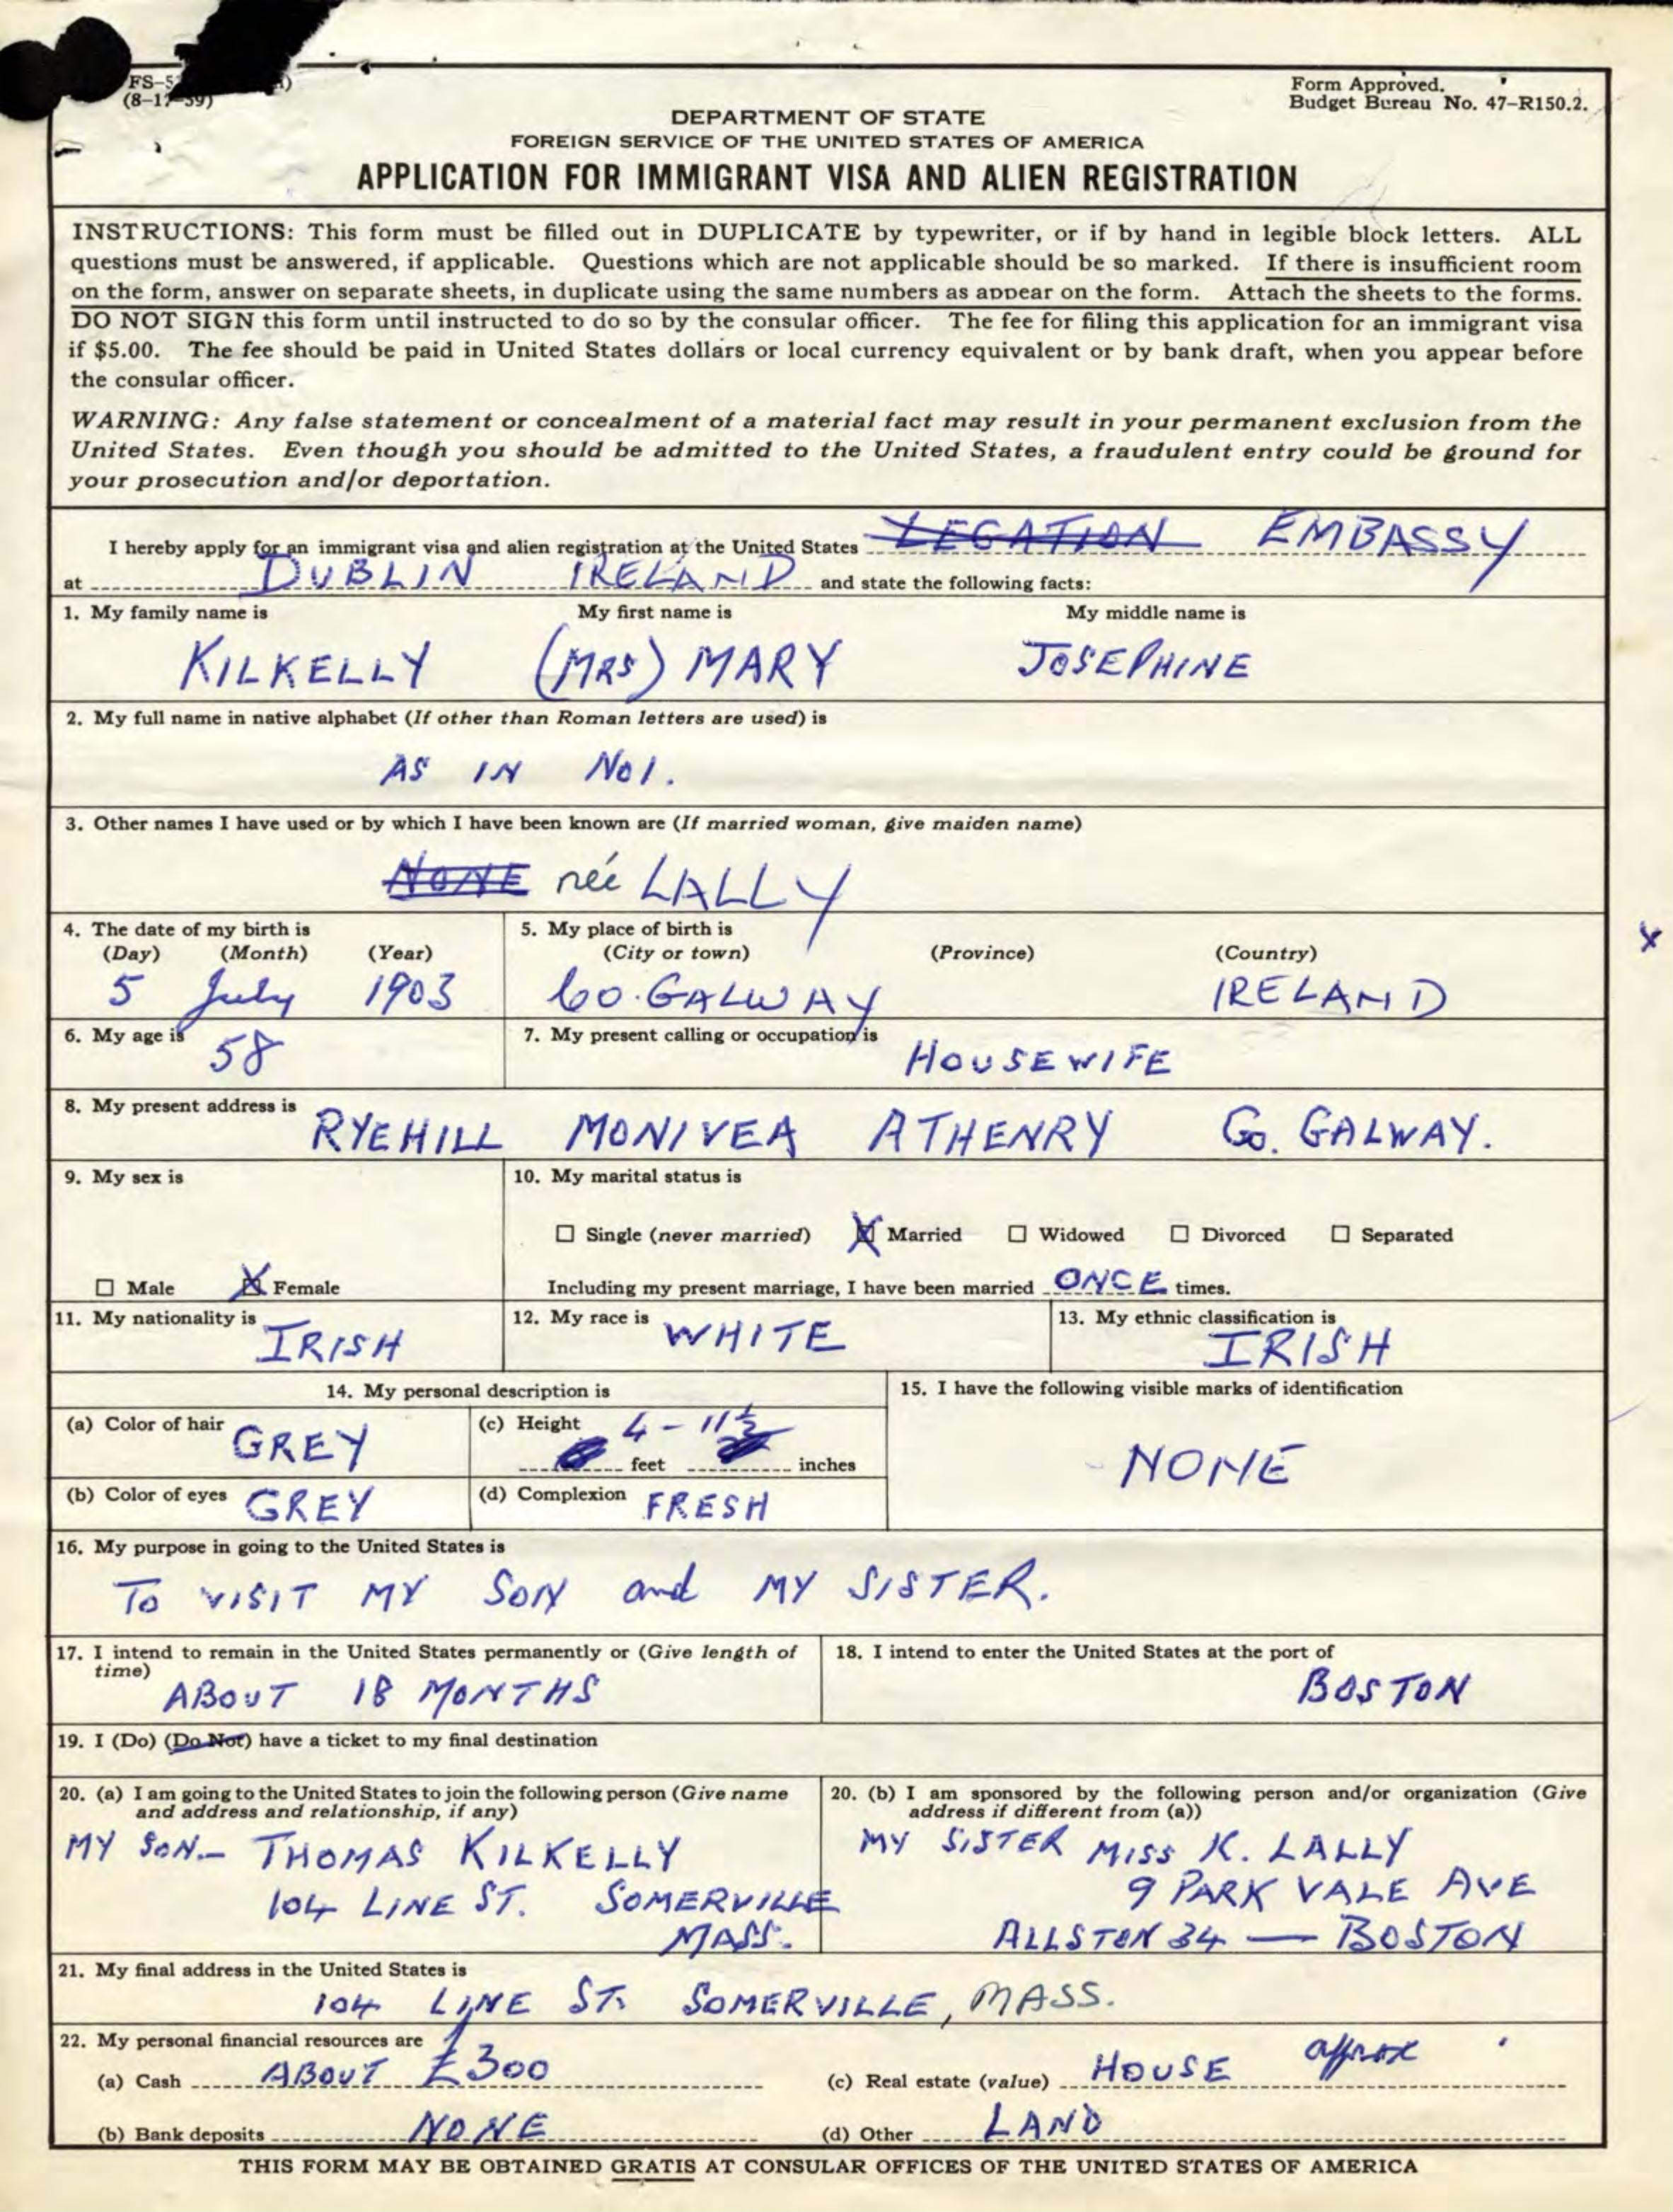 FS-5
(8-17-59)
Form Approved.
Budget Bureau No. 47-R150.2.
DEPARTMENT OF STATE
FOREIGN SERVICE OF THE UNITED STATES OF AMERICA
APPLICATION FOR IMMIGRANT VISA AND ALIEN REGISTRATION
INSTRUCTIONS: This form must be filled out in DUPLICATE by typewriter, or if by hand in legible block letters. ALL
questions must be answered, if applicable. Questions which are not applicable should be so marked. If there is insufficient room
on the form, answer on separate sheets, in duplicate using the same numbers as appear on the form. Attach the sheets to the forms.
DO NOT SIGN this form until instructed to do so by the consular officer. The fee for filing this application for an immigrant visa
if $5.00. The fee should be paid in United States dollars or local currency equivalent or by bank draft, when you appear before
the consular officer.
WARNING: Any false statement or concealment of a material fact may result in your permanent exclusion from the
United States. Even though you should be admitted to the United States, a fraudulent entry could be ground for
your prosecution and/or deportation.
I hereby apply for an immigrant visa and alien registration at the United States LEGATION EMBASSY
at DUBLIN IRELAND and state the following facts:
1. My family name is My first name is My middle name is
KILKELLY (MRS) MARY JOSEPHINE
2. My full name in native alphabet (If other than Roman letters are used) is
AS IN No1.
3. Other names I have used or by which I have been known are (If married woman, give maiden name)
NONE née LALLY
4. The date of my birth is 5. My place of birth is
(Day) (Month) (Year) (City or town) (Province) (Country)
X
5 July 1903 Co. GALWAY IRELAND
6. My age is 58 7. My present calling or occupation is HOUSEWIFE
8. My present address is RYEHILL MONIVEA ATHENRY Co. GALWAY.
9. My sex is 10. My marital status is
☐ Single (never married) X Married ☐ Widowed ☐ Divorced ☐ Separated
☐ Male X Female Including my present marriage, I have been married ONCE times.
11. My nationality is IRISH 12. My race is WHITE 13. My ethnic classification is IRISH
14. My personal description is 15. I have the following visible marks of identification
(a) Color of hair GREY (c) Height 4 - 11½
feet inches
NONE
(b) Color of eyes GREY (d) Complexion FRESH
16. My purpose in going to the United States is
To VISIT MY SON and MY SISTER.
17. I intend to remain in the United States permanently or (Give length of
time)
ABOUT 18 MONTHS
18. I intend to enter the United States at the port of
BOSTON
19. I (Do) (Do Not) have a ticket to my final destination
20. (a) I am going to the United States to join the following person (Give name
and address and relationship, if any)
MY SON - THOMAS KILKELLY
104 LINE ST. SOMERVILLE
MASS.
20. (b) I am sponsored by the following person and/or organization (Give
address if different from (a))
MY SISTER MISS K. LALLY
9 PARK VALE AVE
ALLSTON 34 — BOSTON
21. My final address in the United States is
104 LINE ST. SOMERVILLE, MASS.
22. My personal financial resources are
(a) Cash ABOUT £300 (c) Real estate (value) HOUSE approx
(b) Bank deposits NONE (d) Other LAND
THIS FORM MAY BE OBTAINED GRATIS AT CONSULAR OFFICES OF THE UNITED STATES OF AMERICA